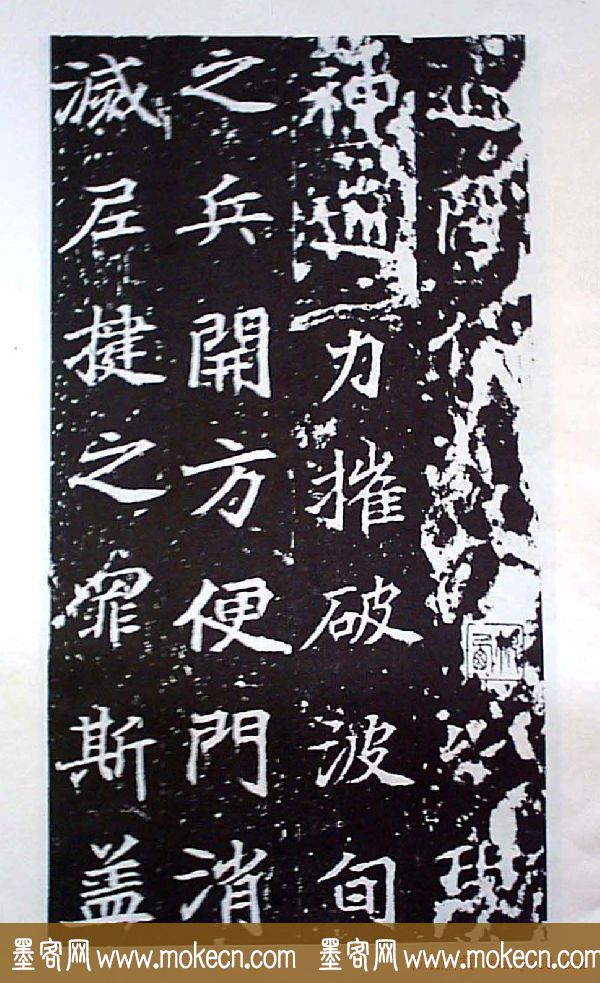 以現
神通力摧破波旬
之兵開方便門消
滅尼揵之罪斯盖
墨客网 www.mokecn.com 墨客网 www.mokecn.com